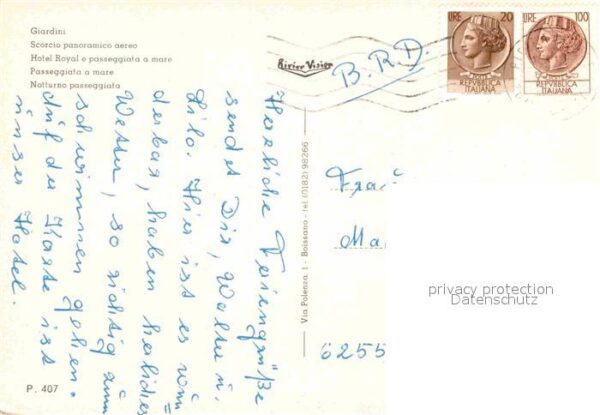 Giardini
Scorcio panoramico aereo
Hotel Royal e passeggiata a mare
Passeggiata a mare
Notturno passeggiata
Rivier Vision
B.R.D.
LIRE 20
REPVBBLICA
ITALIANA
LIRE 100
REPVBBLICA
ITALIANA
Herzliche Feriengrüße
sendet Dir, Walter u.
Lilo. Hier ist es wun=
derbar, haben herrliches
Wetter, so richtig zum
schwimmen gehen.
Auf der Karte ist
unser Hotel.
Via Polenza, 1 - Boissano - tel. (0182) 98266
Ma
6255
privacy protection
Datenschutz
P. 407